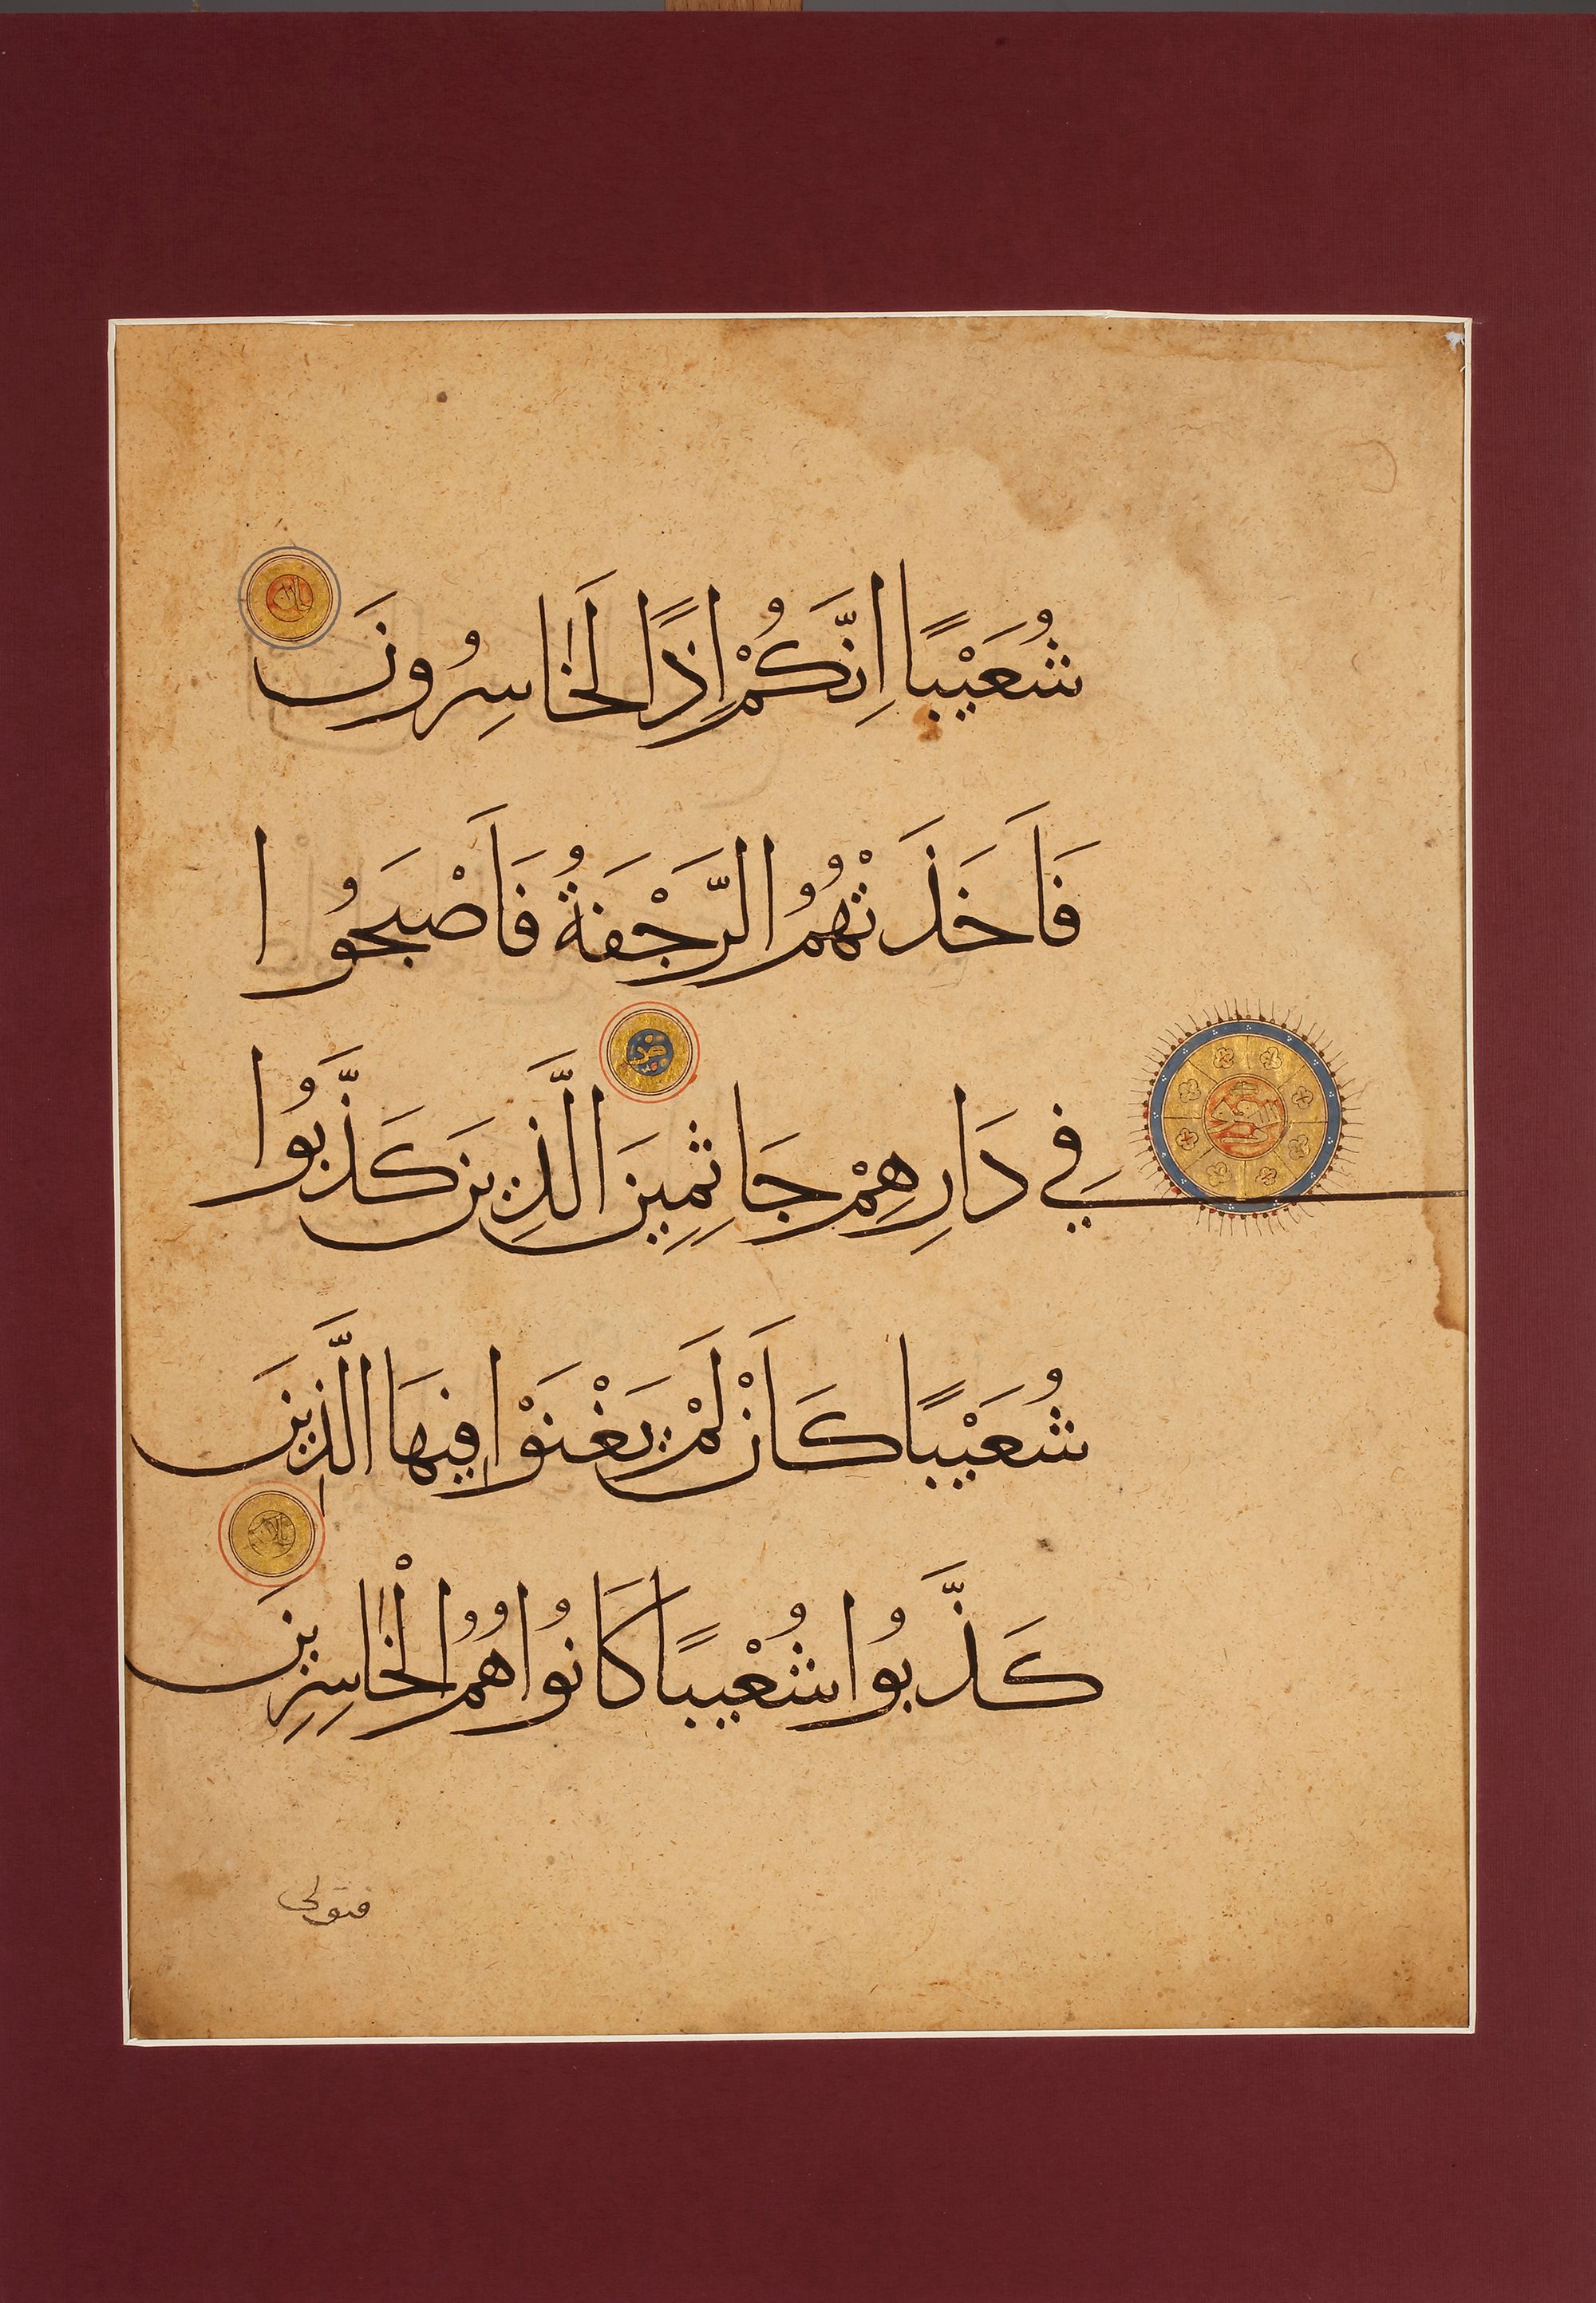 شُعَيْبًا اِنَّكُمْ اِذًا لَخَاسِرُونَ
فَاَخَذَتْهُمُ الرَّجْفَةُ فَاَصْبَحُوا
فِي دَارِهِمْ جَاثِمِينَ الَّذِينَ كَذَّبُوا
شُعَيْبًا كَاَنْ لَمْ يَغْنَوْا فِيهَا الَّذِينَ
كَذَّبُوا شُعْيبًا كَانُوا هُمُ الْخَاسِرِينَ
فتولى